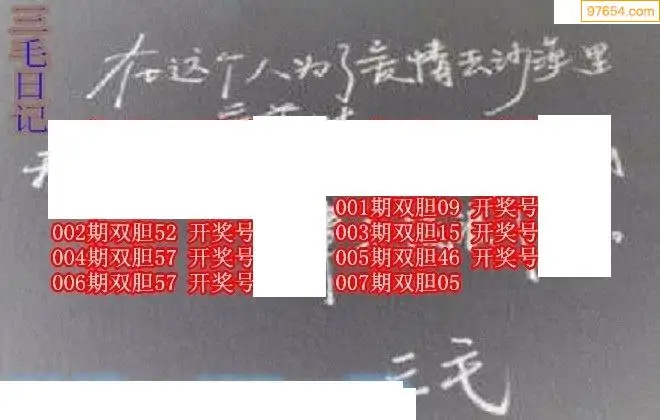 97654.com
三毛日记
在这个人为了爱情去沙漠里
001期双胆09 开奖号
002期双胆52 开奖号
003期双胆15 开奖号
004期双胆57 开奖号
005期双胆46 开奖号
006期双胆57 开奖号
007期双胆05
三毛